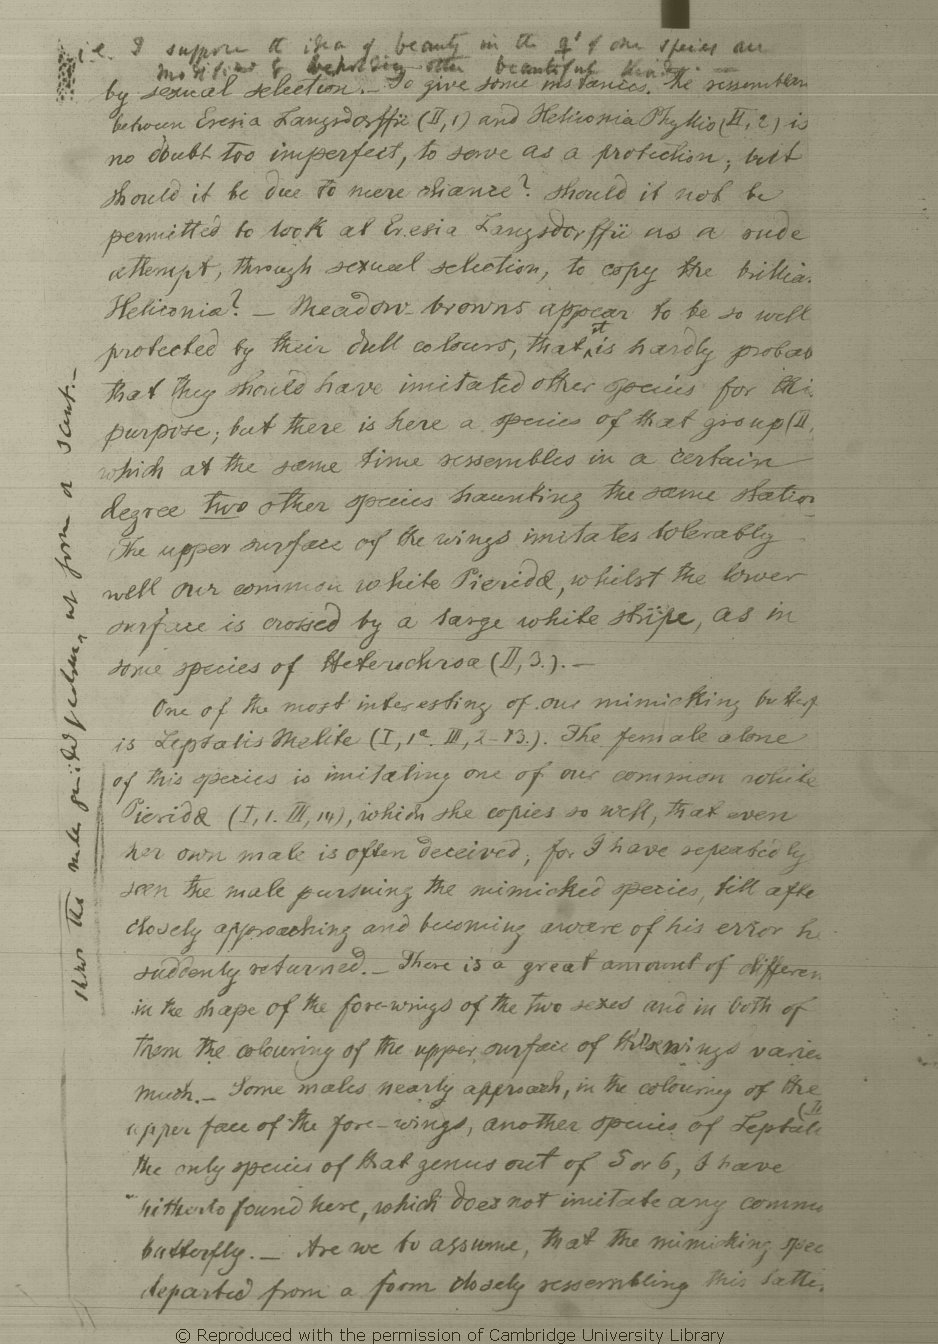 i.e. I suppose the idea of beauty in the ♀s of one species are
modified by beholding other beautiful kinds. —
by sexual selection. — To give some instances. The ressemblan
between Eresia Langsdorffii (II, 1) and Heliconia Phyllis (II, 2) is
no doubt too imperfect, to serve as a protection; but
should it be due to mere chance? should it not be
permitted to look at Eresia Langsdorffii as a rude
attempt, through sexual selection, to copy the brillia
Heliconia? — Meadow-browns appear to be so well
protected by their dull colours, that it is hardly probab
that they should have imitated other species for this
purpose; but there is here a species of that group (II,
which at the same time ressembles in a certain
degree two other species haunting the same station
The upper surface of the wings imitates tolerably
well our common white Pieridæ, whilst the lower
surface is crossed by a large white stripe, as in
some species of Heterochroa (II, 3.). —
One of the most interesting of our mimicking butterf
is Leptalis Melite (I, 1a. III, 2–13.). The female alone
of this species is imitating one of our common white
Pieridæ (I, 1. III, 14), which she copies so well, that even
her own male is often deceived; for I have repeatedly
seen the male pursuing the mimicked species, till afte
closely approaching and becoming aware of his error he
suddenly returned. — There is a great amount of differen
in the shape of the fore-wings of the two sexes and in both of
them the colouring of the upper surface of the wings varies
much. — Some males nearly approach, in the colouring of the
upper face of the fore-wings, another species of Leptali (II
the only species of that genus out of 5 or 6, I have
hitherto found here, which does not imitate any commo
butterfly. — Are we to assume, that the mimicking spec
departed from a form closely ressembling this latte
shows the males guided by colour, not form or scent. —
© Reproduced with the permission of Cambridge University Library